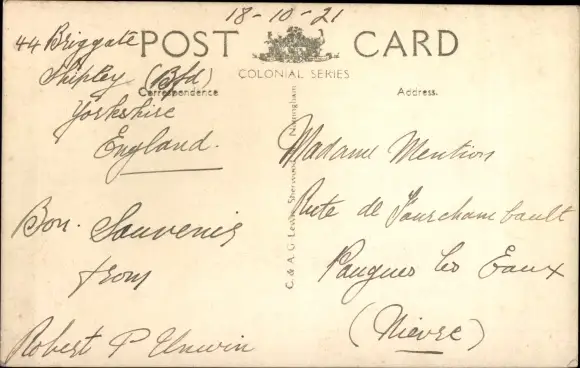 18-10-21
POST CARD
COLONIAL SERIES
Correspondence
Address.
44 Briggate
Shipley (Bfd)
Yorkshire
England.
Bon Souvenir
from
Robert P Unwin
C. & A. G. Lewis, Sherwood, Nottingham
Madame Mention
Rute de Fourchambault
Pougues les Eaux
(Nievre)